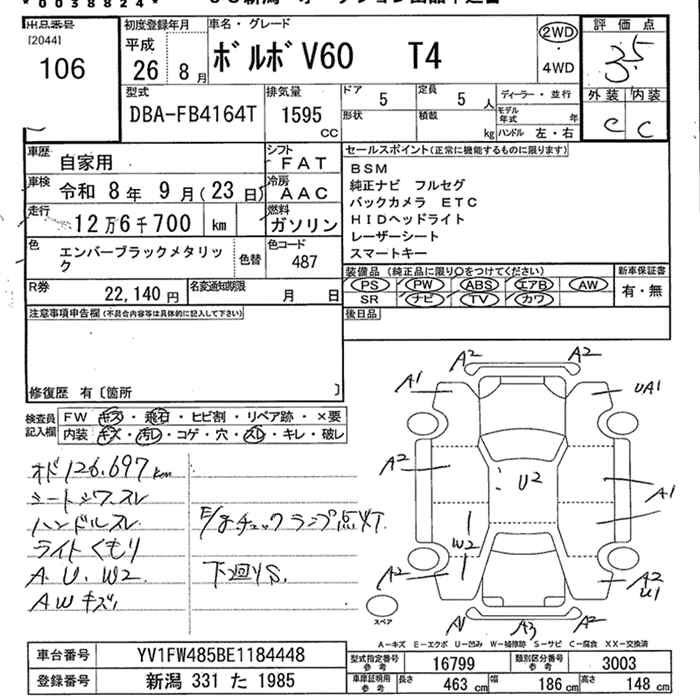 *0038824*
出品番号
[2044]
106
初度登録年月
平成
26年 8月
車名・グレード
ボルボV60 T4
2WD
4WD
評価点
3.5
外装 内装
C C
型式
DBA-FB4164T
排気量
1595
CC
ドア 5
定員 5人
形状
積載 kg
ディーラー・並行
モデル年式 年
ハンドル 左・右
車歴
自家用
シフト
FAT
車検
令和 8年 9月(23日)
冷房
AAC
走行
12万6千700 km
燃料
ガソリン
色
エンバーブラックメタリック
色替
色コード
487
R券
22,140円
名変通知期限
月 日
セールスポイント(正常に機能するものに限ります)
BSM
純正ナビ フルセグ
バックカメラ ETC
HIDヘッドライト
レーザーシート
スマートキー
装備品(純正品に限り○をつけてください)
PS PW ABS エアB AW
SR ナビ TV カワ
新車保証書
有・無
後日品
注意事項申告欄(不具合内容等は具体的に記入して下さい)
修復歴 有〔箇所 〕
検査員記入欄
FW キズ・飛石・ヒビ割・リペア跡・×要
内装 キズ・汚レ・コゲ・穴・スレ・キレ・破レ
オド126.697km
シートシワスレ
ハンドルスレ
ライトくもり
A.U.W2
AWキズ
E/gチェックランプ点灯
下廻りS.
A2 A2
A1 UA1
A2
U2
A1
W2
A2 A2
U1
A1 A3 A2
スペア
A-キズ E-エクボ U-凹み W-補修跡 S-サビ C-腐食 XX-交換済
車台番号
YV1FW485BE1184448
登録番号
新潟 331 た 1985
型式指定番号
参考
16799
類別区分番号
参考
3003
車庫証明用
参考
長さ 463 cm
幅 186 cm
高さ 148 cm